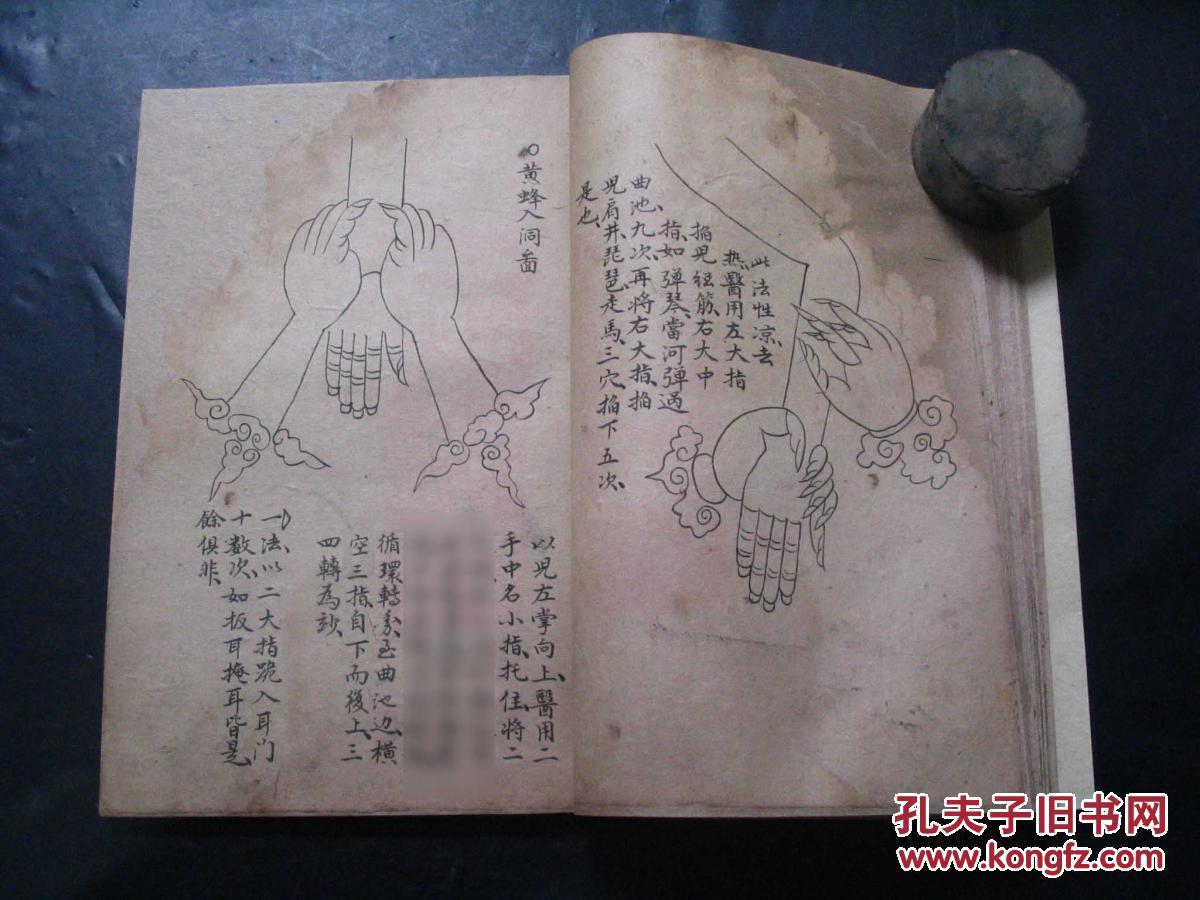 此法性凉去
热醫用左大指
掐兒經筋、右大中
指、如弹琴、當河弹過
曲池、九次、再将右大指、掐
兒肩井琵琶、走馬、三穴、掐下五次、
是也、
○黄蜂入洞啚
以兒左掌向上、醫用二
手中名小指、托住、将二
循環轉
曲池边、橫
空三指、自下而後上、三
四轉為
一法、以二大指跪入耳门
十数次、如扳耳掩耳皆是、
餘俱非、
孔夫子旧书网
www.kongfz.com